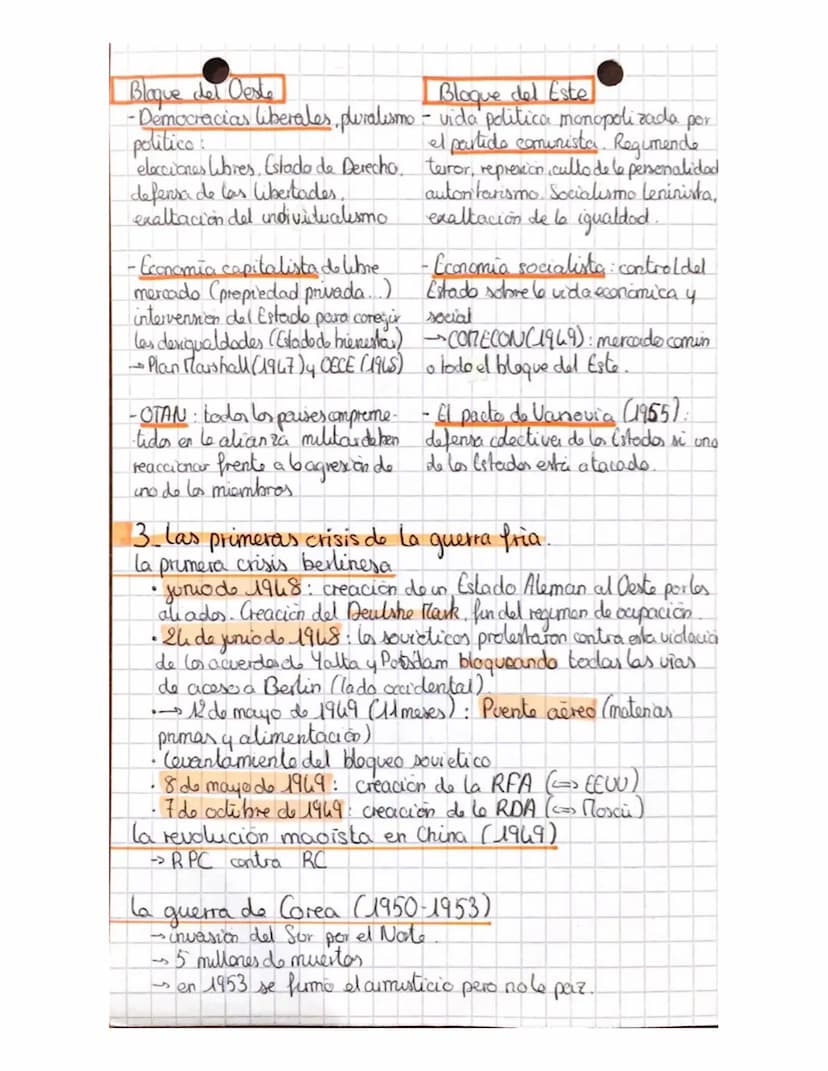 Bloque del Oeste
- Democracias liberales, pluralismo
político :
elecciones libres, Estado de Derecho,
defensa de las libertades,
exaltación del individualismo
- Economía capitalista de libre
mercado (propiedad privada...)
intervension del Estado para coregir
las desigualdades (Estado de bienestar)
→ Plan Marshall (1947) y OECE (1948)
- OTAN : todos los paises comprome-
tidos en la alianza militar deben
reaccionar frente a la agresión de
uno de los miembros
Bloque del Este
- vida política monopolizada por
el partido comunista. Regimen de
terror, represión, culto de la personalidad
autoritarismo. Socialismo leninista,
exaltación de la igualdad.
- Economía socialista : control del
Estado sobre la vida económica y
social
→ COMECON (1949) : mercado común
a todo el bloque del Este.
- El pacto de Varsovia (1955) :
defensa colectiva de los Estados si uno
de los Estados está atacado.
3_ Las primeras crisis de la guerra fría.
La primera crisis berlinesa
• junio de 1948 : creación de un Estado Aleman al Oeste por los
aliados. Creación del Deutshe Mark, fin del regimen de ocupación.
• 24 de junio de 1948 : los soviéticos protestaron contra esta violación
de los acuerdos de Yalta y Potsdam bloqueando todas las vías
de acceso a Berlin (lado occidental).
• → 12 de mayo de 1949 (11 meses) : Puente aéreo (materias
primas y alimentación)
• Levantamiento del bloqueo sovietico
• 8 de mayo de 1949 : creación de la RFA (⇔ EEUU)
• 7 de octubre de 1949 : creación de la RDA (⇔ Moscú)
La revolución maoísta en China (1949)
→ RPC contra RC
La guerra de Corea (1950-1953)
→ invasión del Sur por el Norte.
→ 5 millones de muertos
→ en 1953 se firmó el armisticio pero no la paz.